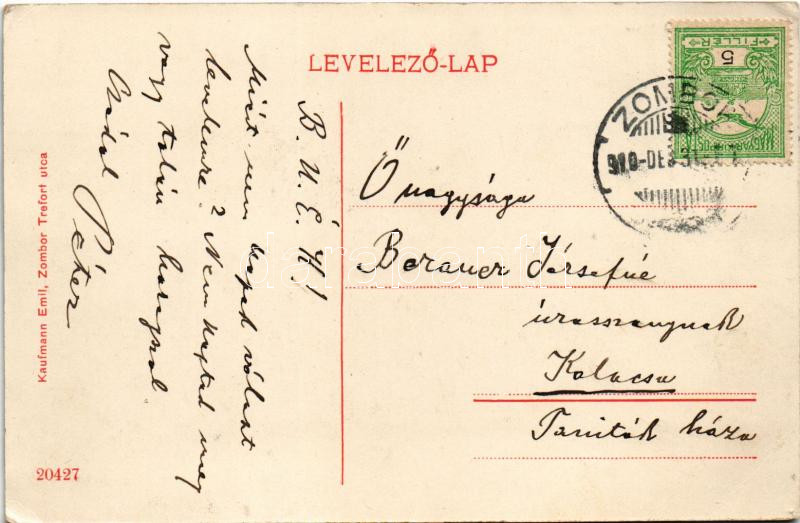 LEVELEZŐ-LAP
5
FILLÉR
ZOMBOR
910-DEC 31
B. U. É. K!
Miért nem kapok választ
levelemre? Nem kaptad meg
vagy talán haragszol
Ő nagysága
Berauer Józsefné
úrasszonynak
Kalocsa
Tanítók háza
Kaufmann Emil, Zombor Trefort utca
20427
darabanth